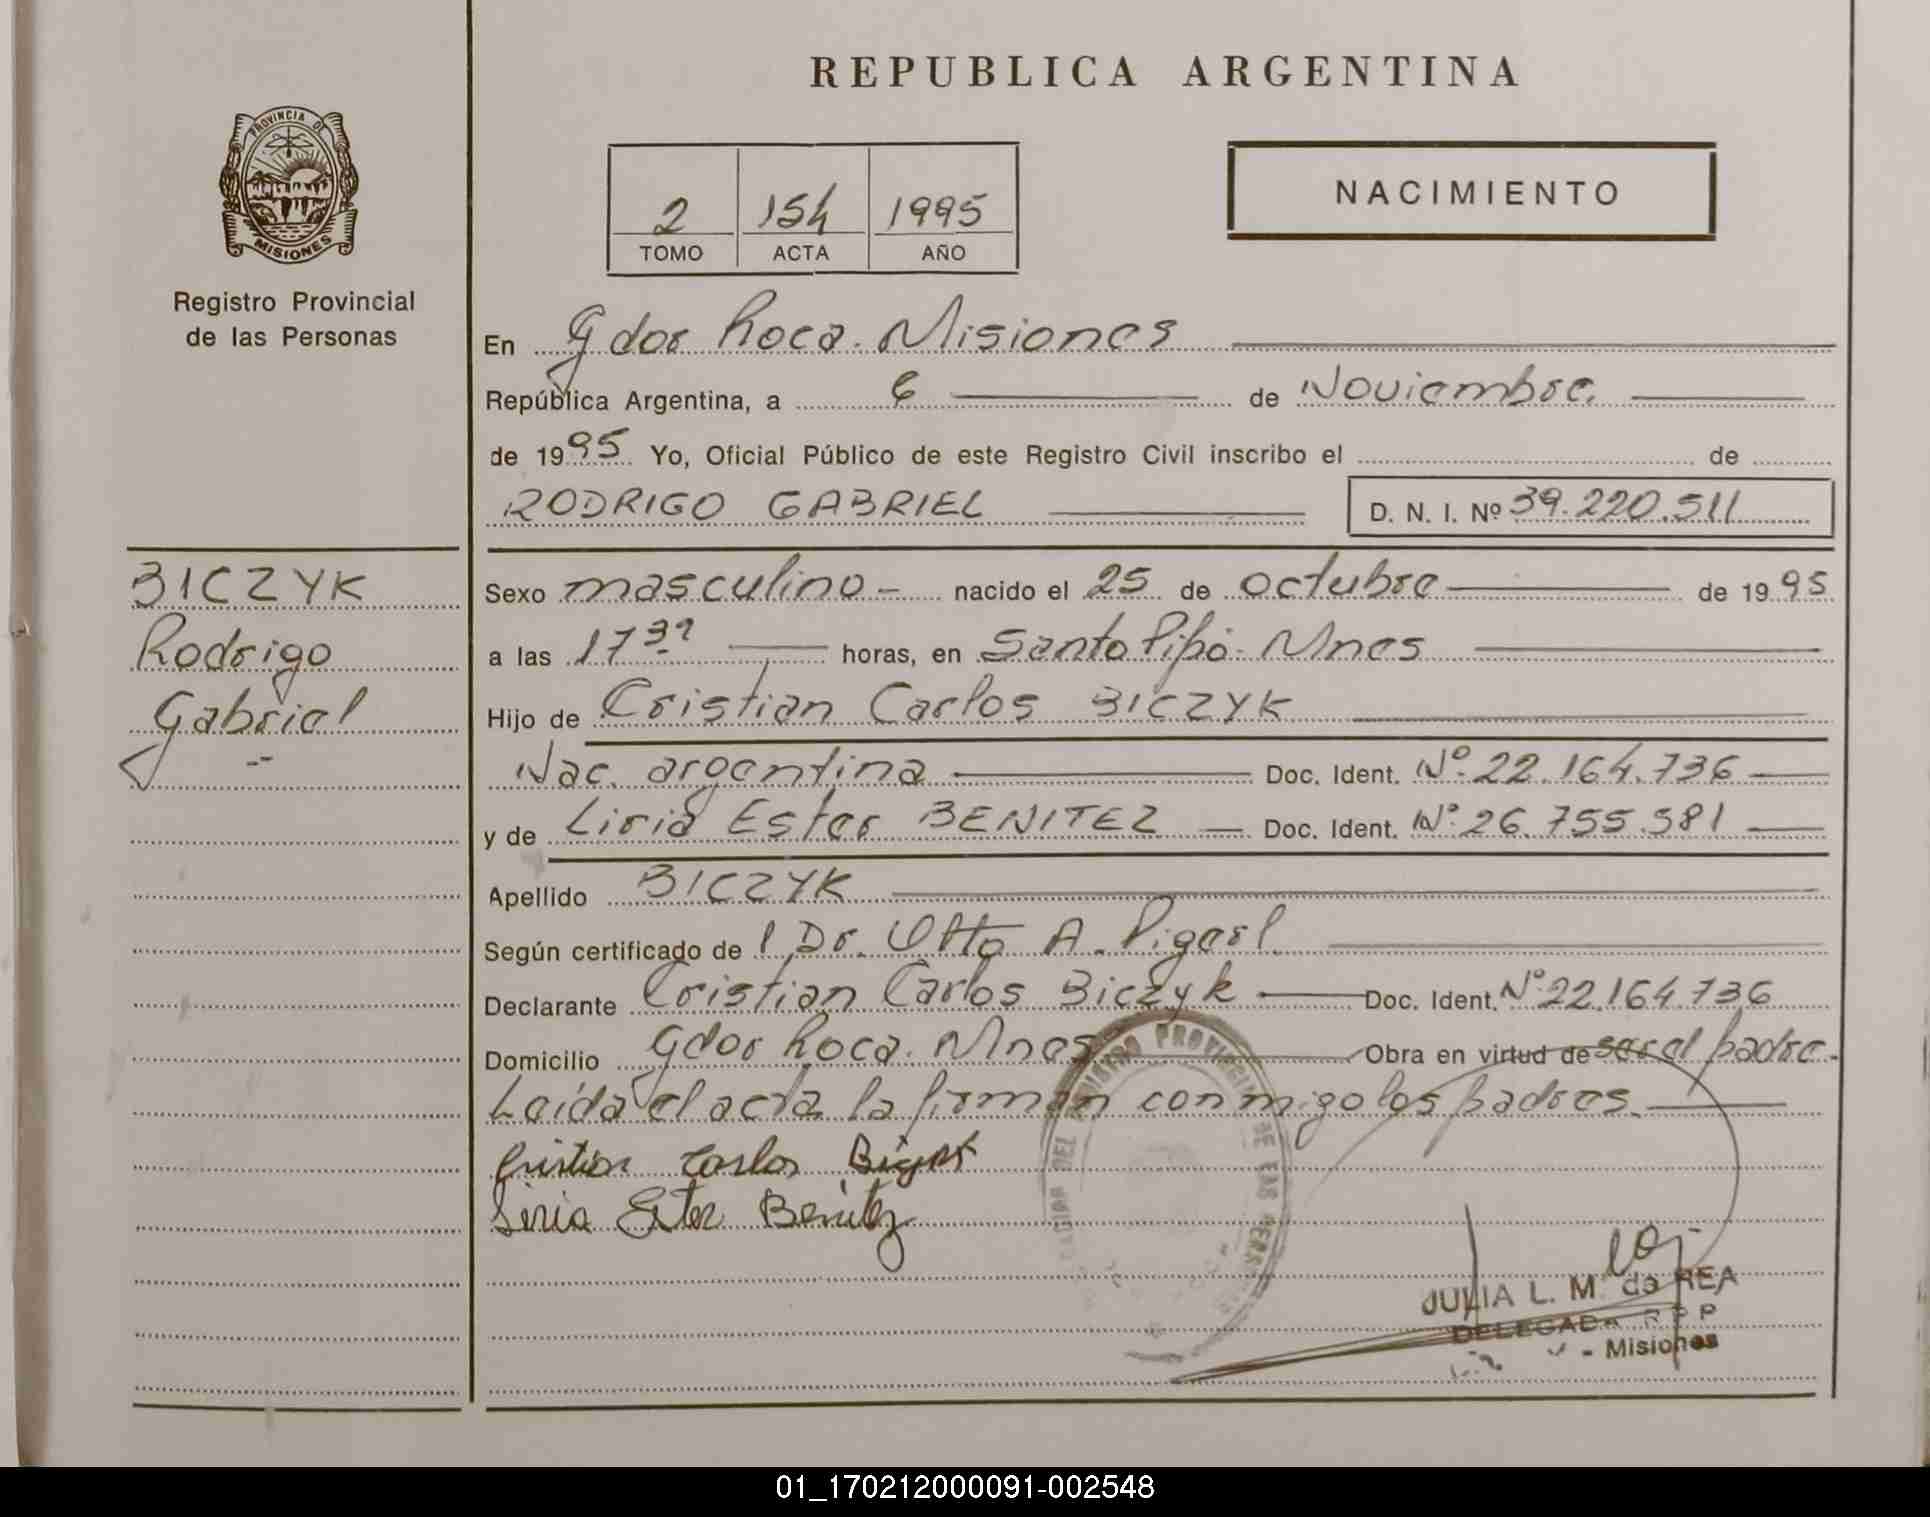 REPUBLICA ARGENTINA
PROVINCIA DE
MISIONES
Registro Provincial
de las Personas
2 154 1995
TOMO ACTA AÑO
NACIMIENTO
En Gdor Roca. Misiones
República Argentina, a 6 de Noviembre.
de 1995 Yo, Oficial Público de este Registro Civil inscribo el de
RODRIGO GABRIEL D. N. I. Nº 39.220.511
BICZYK
Rodrigo
Gabriel
Sexo masculino - nacido el 25 de octubre de 1995
a las 17 horas, en Santo Pipó - Mnes
Hijo de Cristian Carlos BICZYK
Nac. argentina Doc. Ident. Nº 22.164.736
y de Liria Ester BENITEZ Doc. Ident. Nº 26.755.581
Apellido BICZYK
Según certificado de l Dr. Otto A.
Declarante Cristian Carlos Biczyk Doc. Ident. Nº 22.164.736
Domicilio Gdor Roca. Mnes Obra en virtud de ser el padre.
Leída el acta la firman conmigo los padres.
Cristian Carlos
Liria Ester Benitez
REGISTRO PROVINCIAL DE LAS PERS
JULIA L. M. de REA
DELEGADA R P P
- Misiones
01_170212000091-002548